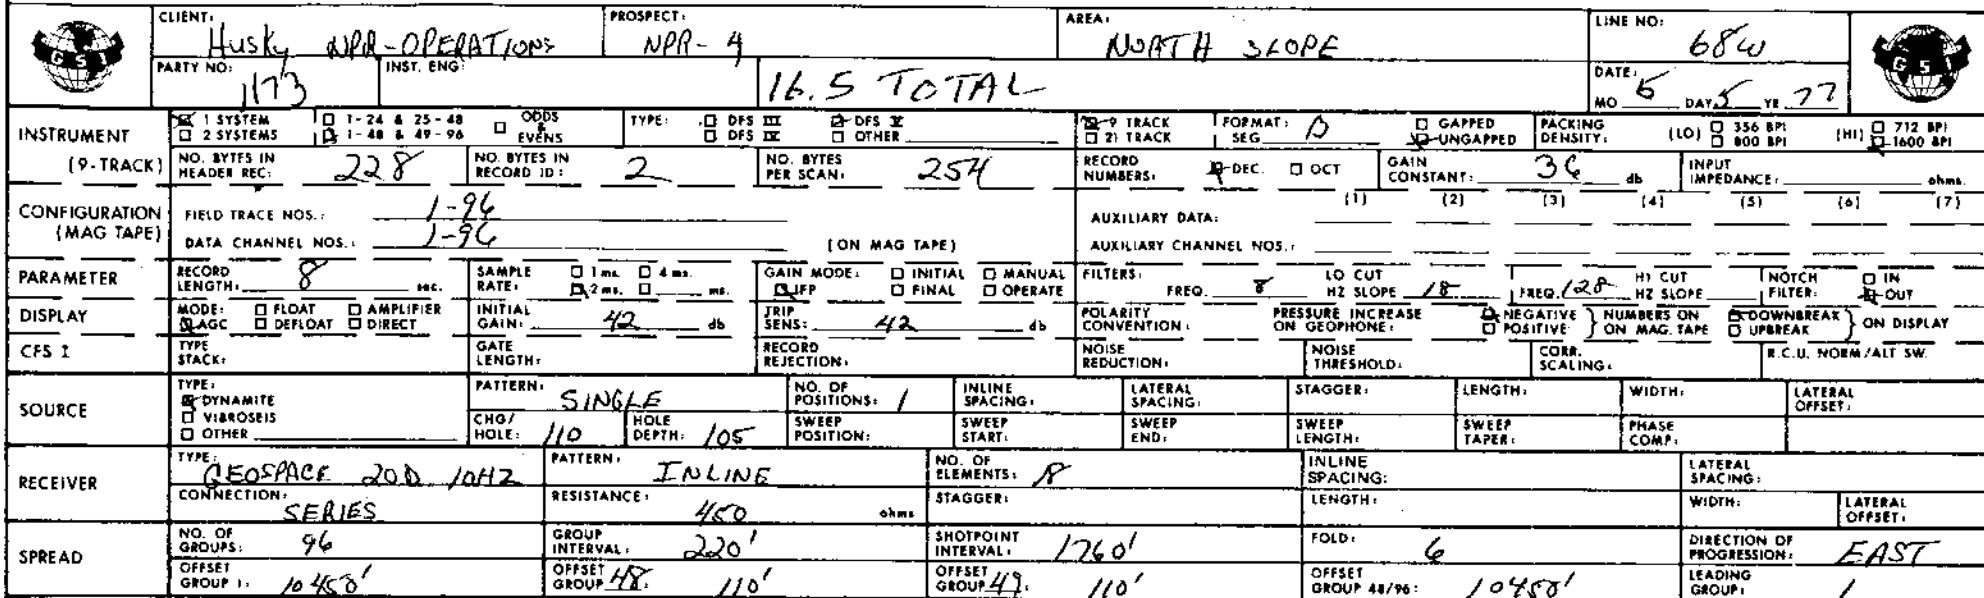 CLIENT: Husky NPR-OPERATIONS PROSPECT: NPR-4 AREA: NORTH SLOPE LINE NO: 68W
GSI GSI
PARTY NO: 1173 INST. ENG: 16.5 TOTAL DATE: MO 5 DAY 5 YR 77
INSTRUMENT 1 SYSTEM 1-24 & 25-48 ODDS & EVENS TYPE: DFS III DFS V 9 TRACK FORMAT: SEG B GAPPED PACKING DENSITY: (LO) 356 BPI (HI) 712 BPI
2 SYSTEMS 1-48 & 49-96 DFS IV OTHER 21 TRACK UNGAPPED 800 BPI 1600 BPI
(9-TRACK) NO. BYTES IN HEADER REC: 228 NO. BYTES IN RECORD ID: 2 NO. BYTES PER SCAN: 254 RECORD NUMBERS: DEC. OCT GAIN CONSTANT: 36 db INPUT IMPEDANCE: ohms.
CONFIGURATION (MAG TAPE) FIELD TRACE NOS.: 1-96 AUXILIARY DATA: (1) (2) (3) (4) (5) (6) (7)
DATA CHANNEL NOS.: 1-96 (ON MAG TAPE) AUXILIARY CHANNEL NOS.:
PARAMETER RECORD LENGTH: 8 sec. SAMPLE RATE: 1 ms. 4 ms. 2 ms. ms. GAIN MODE: INITIAL MANUAL IFP FINAL OPERATE FILTERS: FREQ. 8 LO CUT HZ SLOPE 18 FREQ. 128 HI CUT HZ SLOPE NOTCH FILTER: IN OUT
DISPLAY MODE: FLOAT AMPLIFIER AGC DEFLOAT DIRECT INITIAL GAIN: 42 db TRIP SENS: 42 db POLARITY CONVENTION: PRESSURE INCREASE ON GEOPHONE: NEGATIVE POSITIVE } NUMBERS ON MAG. TAPE DOWNBREAK UPBREAK } ON DISPLAY
CFS I TYPE STACK: GATE LENGTH: RECORD REJECTION: NOISE REDUCTION: NOISE THRESHOLD: CORR. SCALING: R.C.U. NORM/ALT SW.
SOURCE TYPE: DYNAMITE VIBROSEIS OTHER PATTERN: SINGLE NO. OF POSITIONS: 1 INLINE SPACING: LATERAL SPACING: STAGGER: LENGTH: WIDTH: LATERAL OFFSET:
CHG/HOLE: 110 HOLE DEPTH: 105 SWEEP POSITION: SWEEP START: SWEEP END: SWEEP LENGTH: SWEEP TAPER: PHASE COMP:
RECEIVER TYPE: GEOSPACE 20D 10HZ PATTERN: INLINE NO. OF ELEMENTS: INLINE SPACING: LATERAL SPACING:
CONNECTION: SERIES RESISTANCE: 450 ohms STAGGER: LENGTH: WIDTH: LATERAL OFFSET:
SPREAD NO. OF GROUPS: 96 GROUP INTERVAL: 220' SHOTPOINT INTERVAL: 1760' FOLD: 6 DIRECTION OF PROGRESSION: EAST
OFFSET GROUP 1: 10450' OFFSET GROUP 48: 110' OFFSET GROUP 49: 110' OFFSET GROUP 48/96: 10450' LEADING GROUP: 1